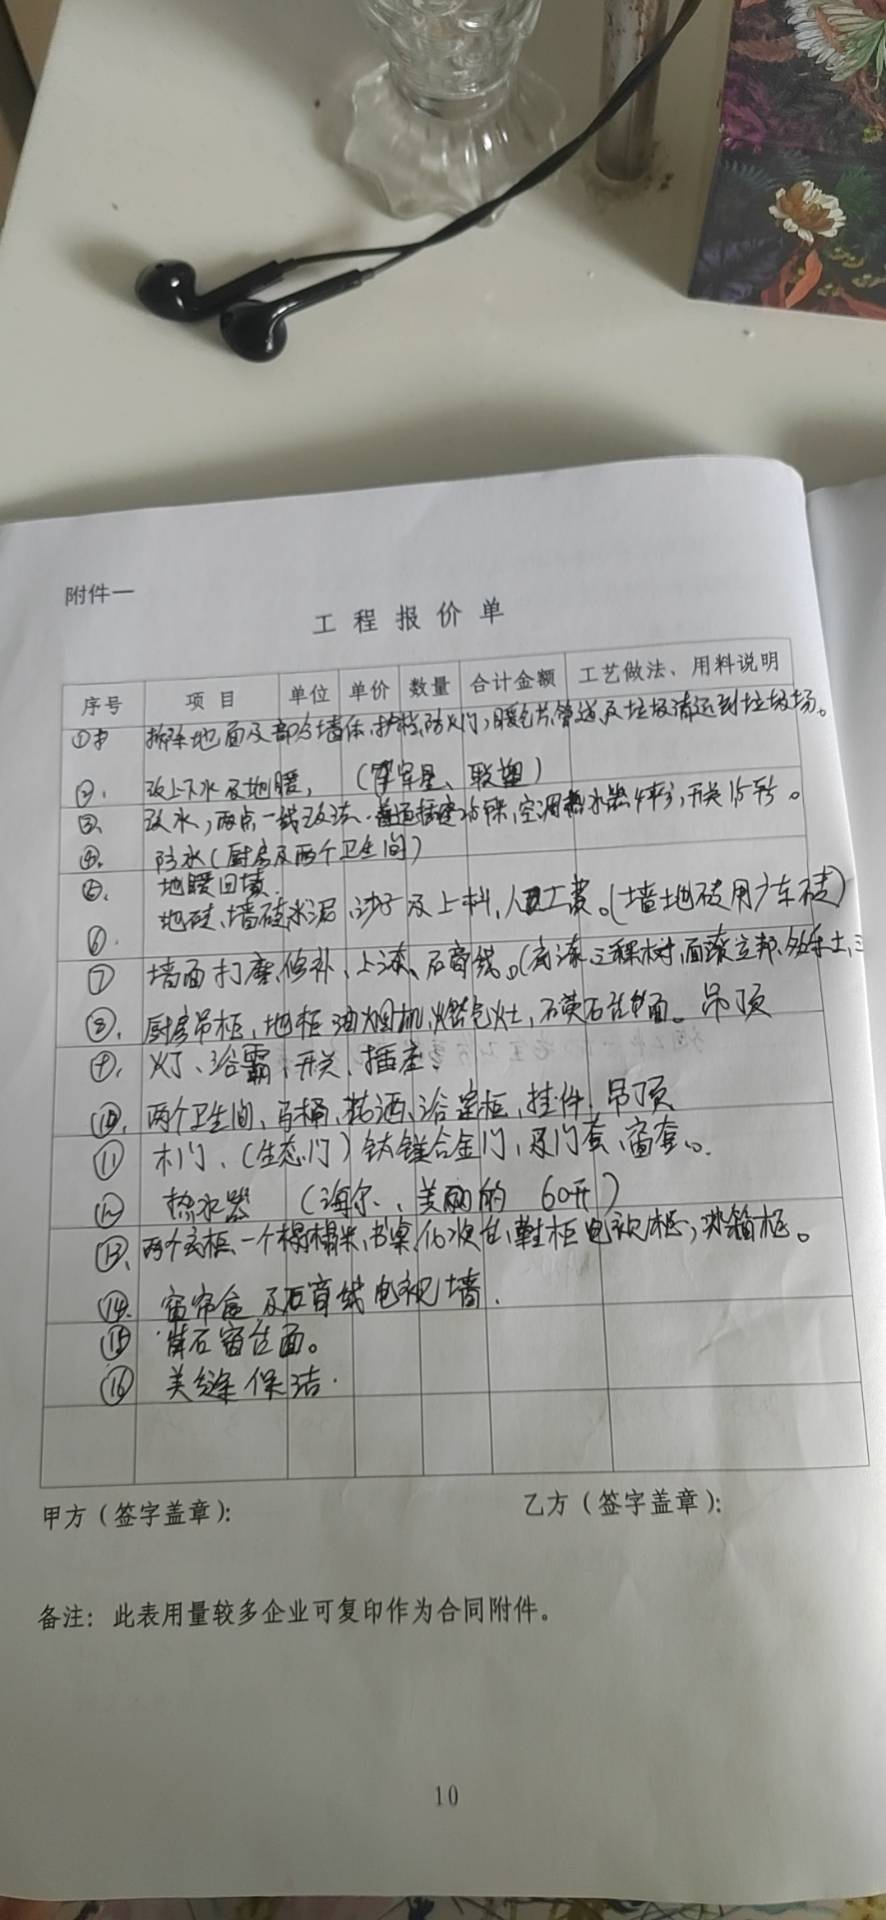 附件一
工程报价单
序号 项目 单位 单价 数量 合计金额 工艺做法、用料说明
① 拆除地面及部分墙体、护栏,防火门,暖气片,管道及垃圾清运到垃圾场。
②. 改上下水及地暖, ( 联塑)
③. 改水,两点一线改法. 普通插座 空调热水器4平方,开关1.5平方。
④. 防水(厨房及两个卫生间)
⑤. 地暖回填.
⑥. 地砖、墙砖水泥、沙子及上料,人工费。(墙地砖用广东砖)
⑦ 墙面打磨,修补、上漆、石膏线。(底漆三棵树,面漆立邦,
⑧. 厨房吊柜,地柜油烟机,燃气灶,石英石台面。吊顶
⑨. 灯、浴霸,开关、插座.
⑩. 两个卫生间,马桶,花洒、浴室柜,挂件,吊顶
⑪ 木门、(生态门)钛镁合金门,及门套、窗套。
⑫ 热水器 (海尔、美的 60升)
⑬、两个衣柜、一个榻榻米,书桌, 鞋柜电视柜,冰箱柜。
⑭. 窗帘盒及石膏线电视墙.
⑮ 石窗台面。
⑯ 美缝保洁.
甲方(签字盖章): 乙方(签字盖章):
备注:此表用量较多企业可复印作为合同附件。
10